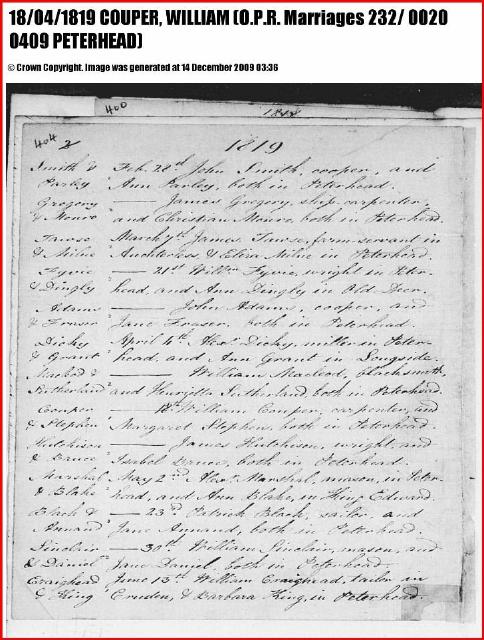 18/04/1819 COUPER, WILLIAM (O.P.R. Marriages 232/ 0020
0409 PETERHEAD)
© Crown Copyright. Image was generated at 14 December 2009 03:36
400
1818
404
2
1819
Smith & Feb. 28th John Smith, cooper, and
Parley Ann Parley, both in Peterhead.
Gregory —— James Gregory, ship carpenter,
& Munro and Christian Munro, both in Peterhead.
Tawse March 7th James Tawse, farm servant in
& Milne Auchterless & Eliza Milne in Peterhead.
Fyvie —— 21st Willm Fyvie, wright in Peter-
& Dingly head, and Ann Dingly in Old Deer.
Adams —— John Adams, cooper, and
& Fraser Jane Fraser, both in Peterhead.
Dicky April 4th Alexr Dicky, miller in Peter-
& Grant head, and Ann Grant in Longside.
Macleod & —— William Macleod, blacksmith,
Sutherland and Henrietta Sutherland, both in Peterhead.
Couper —— 18th William Couper, carpenter, and
& Stephen Margaret Stephen, both in Peterhead.
Hutchison —— James Hutcheson, wright and
& Bruce Isabel Bruce, both in Peterhead.
Marshal May 2nd Alexr Marshal, mason, in Peter-
& Blake head, and Ann Blake, in King Edward.
Black & —— 23d Patrick Black, sailor, and
Annand Jane Annand, both in Peterhead.
Sinclair —— 30th William Sinclair, mason, and
& Daniel Jane Daniel, both in Peterhead.
Craighead June 13th William Craighead, tailor in
& King Cruden, & Barbara King, in Peterhead.